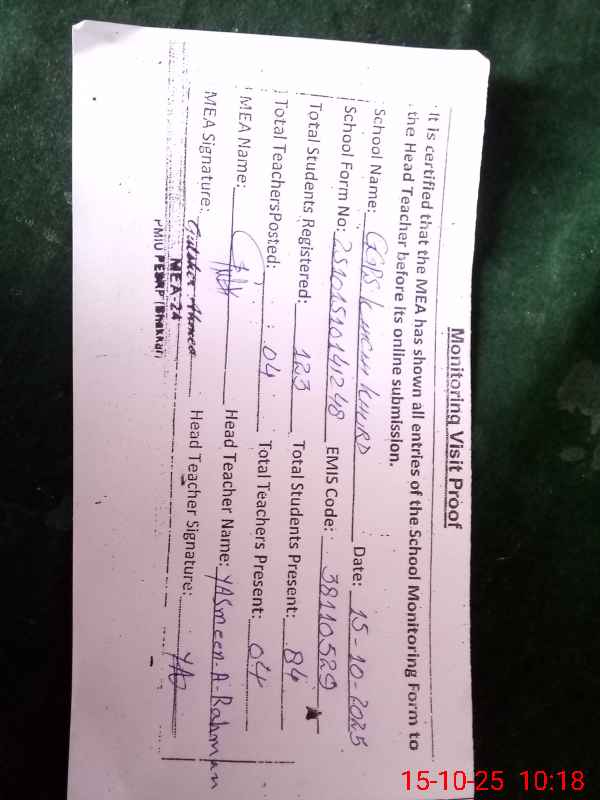 Monitoring Visit Proof
It is certified that the MEA has shown all entries of the School Monitoring Form to
the Head Teacher before its online submission.
School Name: GGPS KHURD Date: 15-10-2025
School Form No: 25101510141248 EMIS Code: 38110529
Total Students Registered: 123 Total Students Present: 84
Total TeachersPosted: 04 Total Teachers Present: 04
MEA Name: Head Teacher Name: YASmeen-A-Rahman
MEA Signature: Ahmed Head Teacher Signature: YA
MEA-24
PMIU PESRP (Bhakkar)
15-10-25 10:18